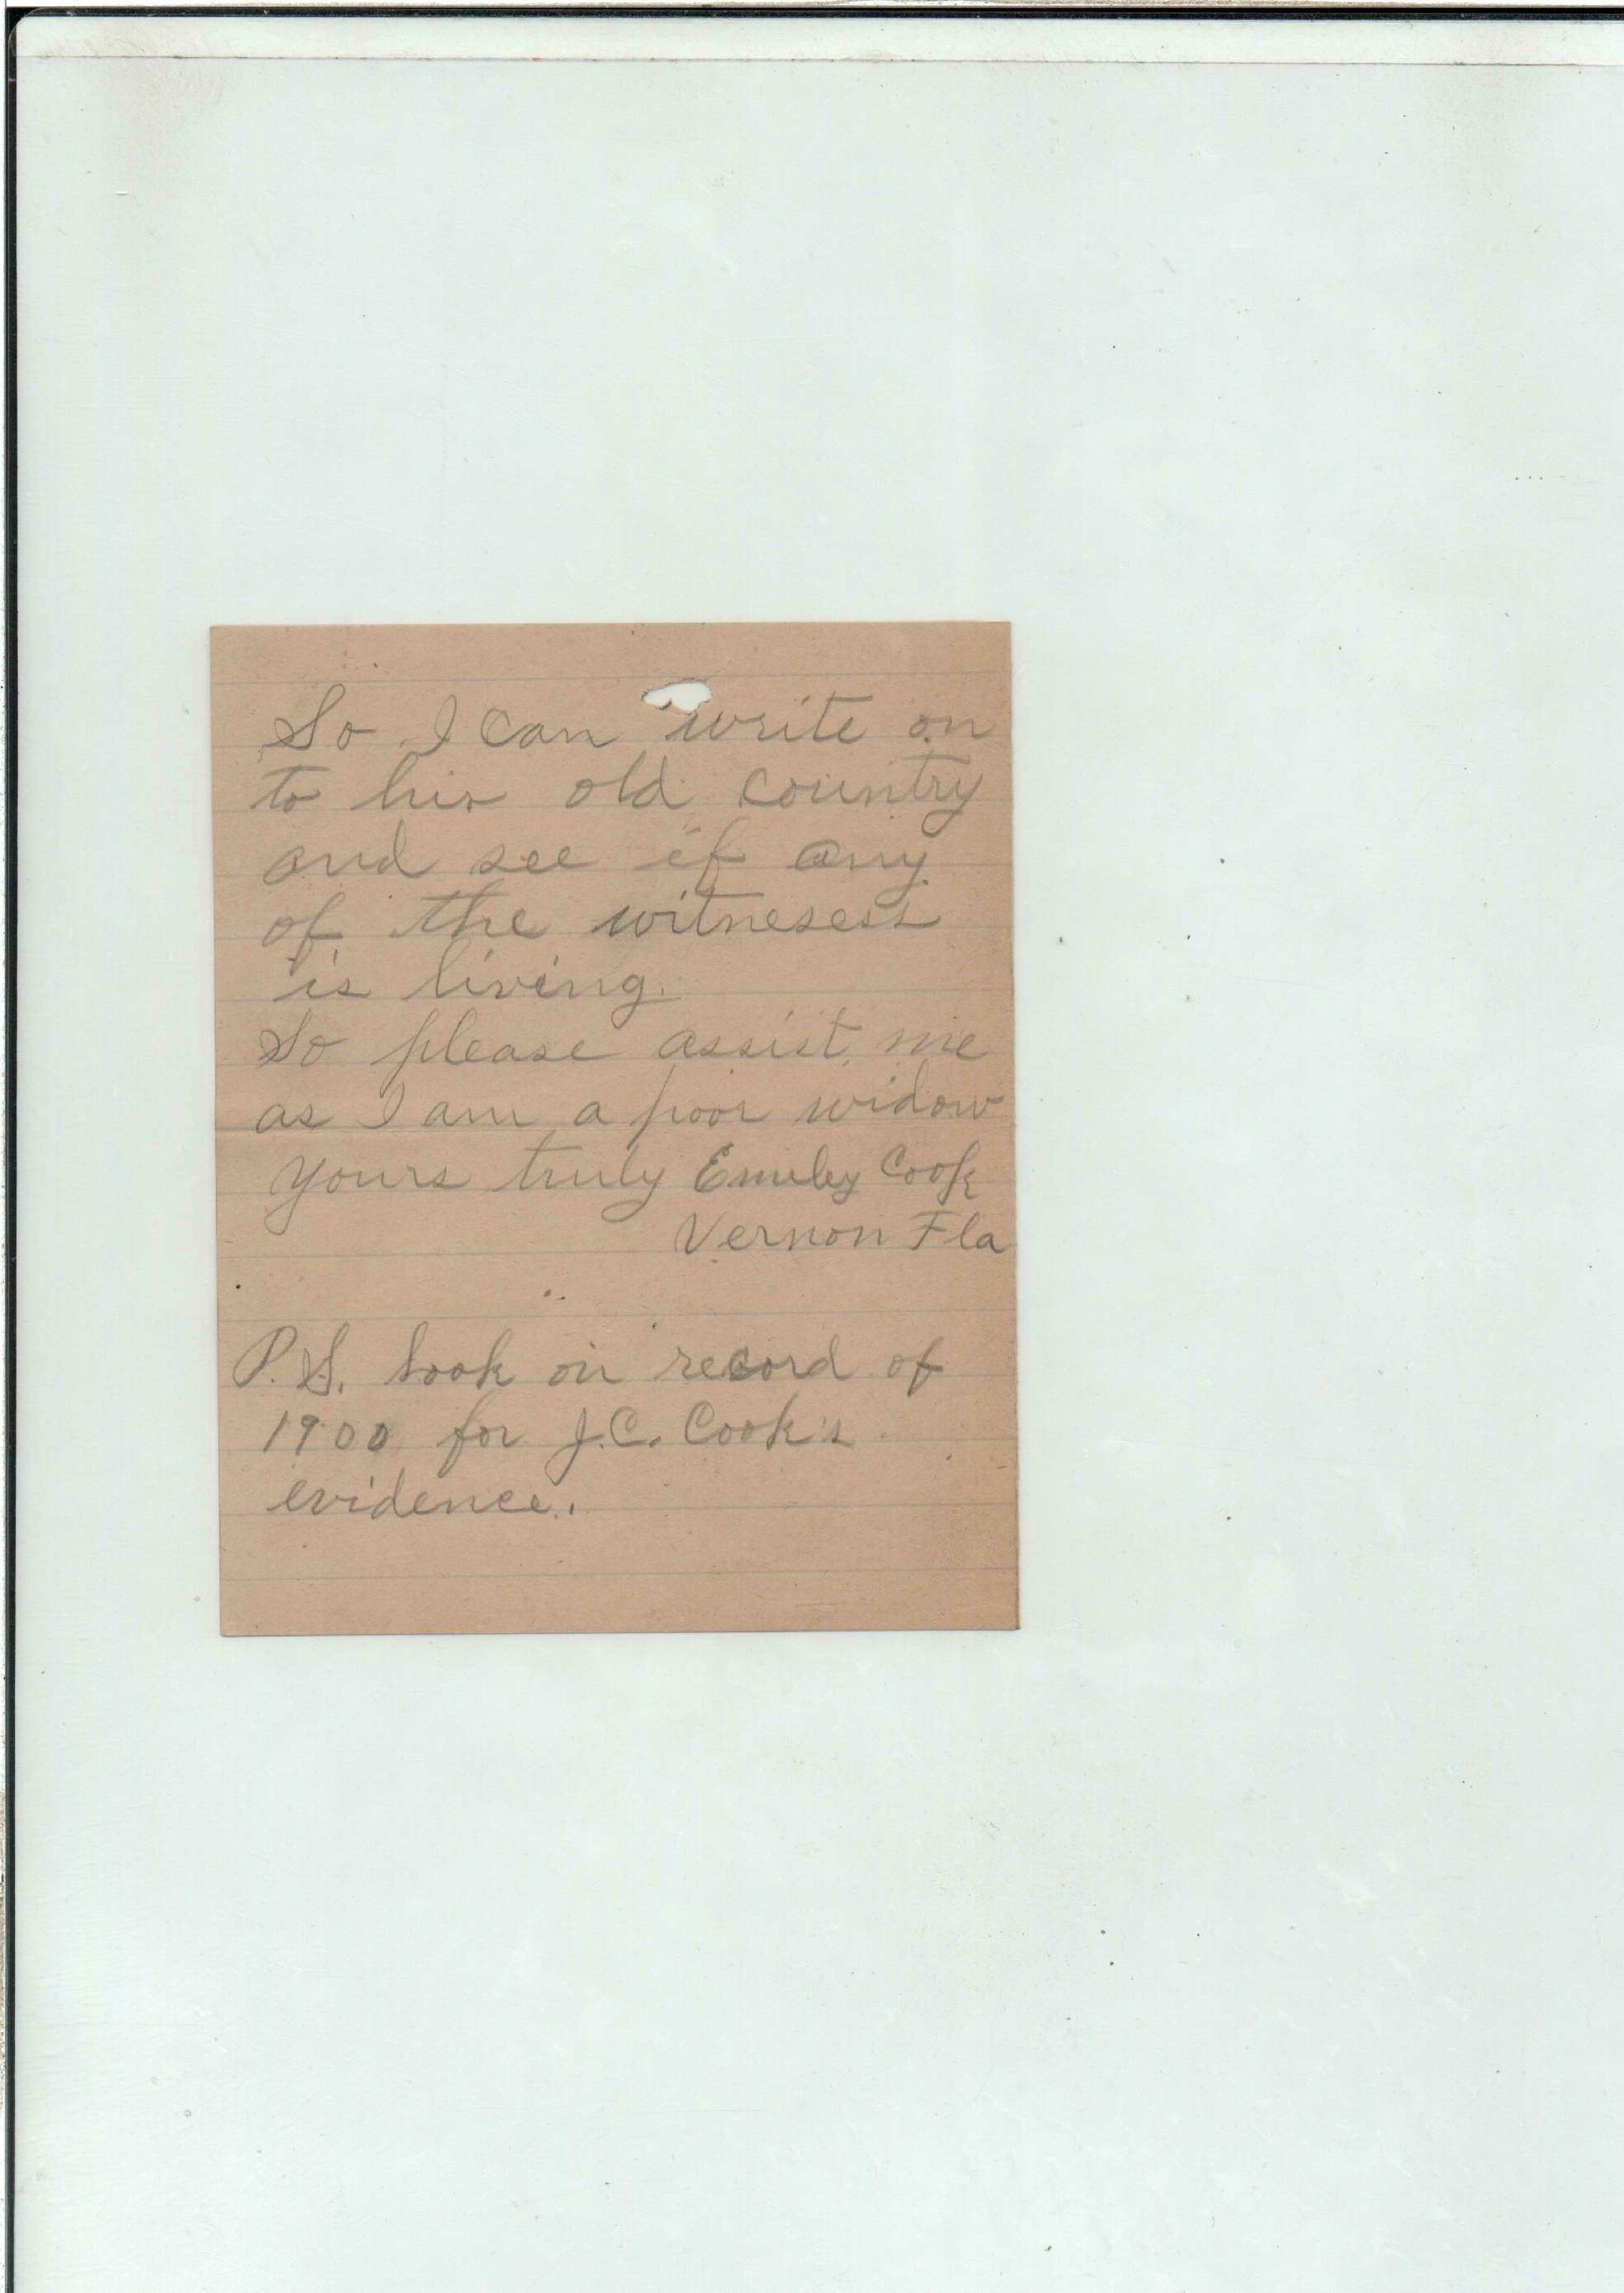 So I can write on
to his old country
and see if any
of the witnesess
is living.
So please assist me
as I am a poor widow
yours truly Emiley Cook
Vernon Fla
P.S. look on record of
1900 for J.C. Cook's
evidence.